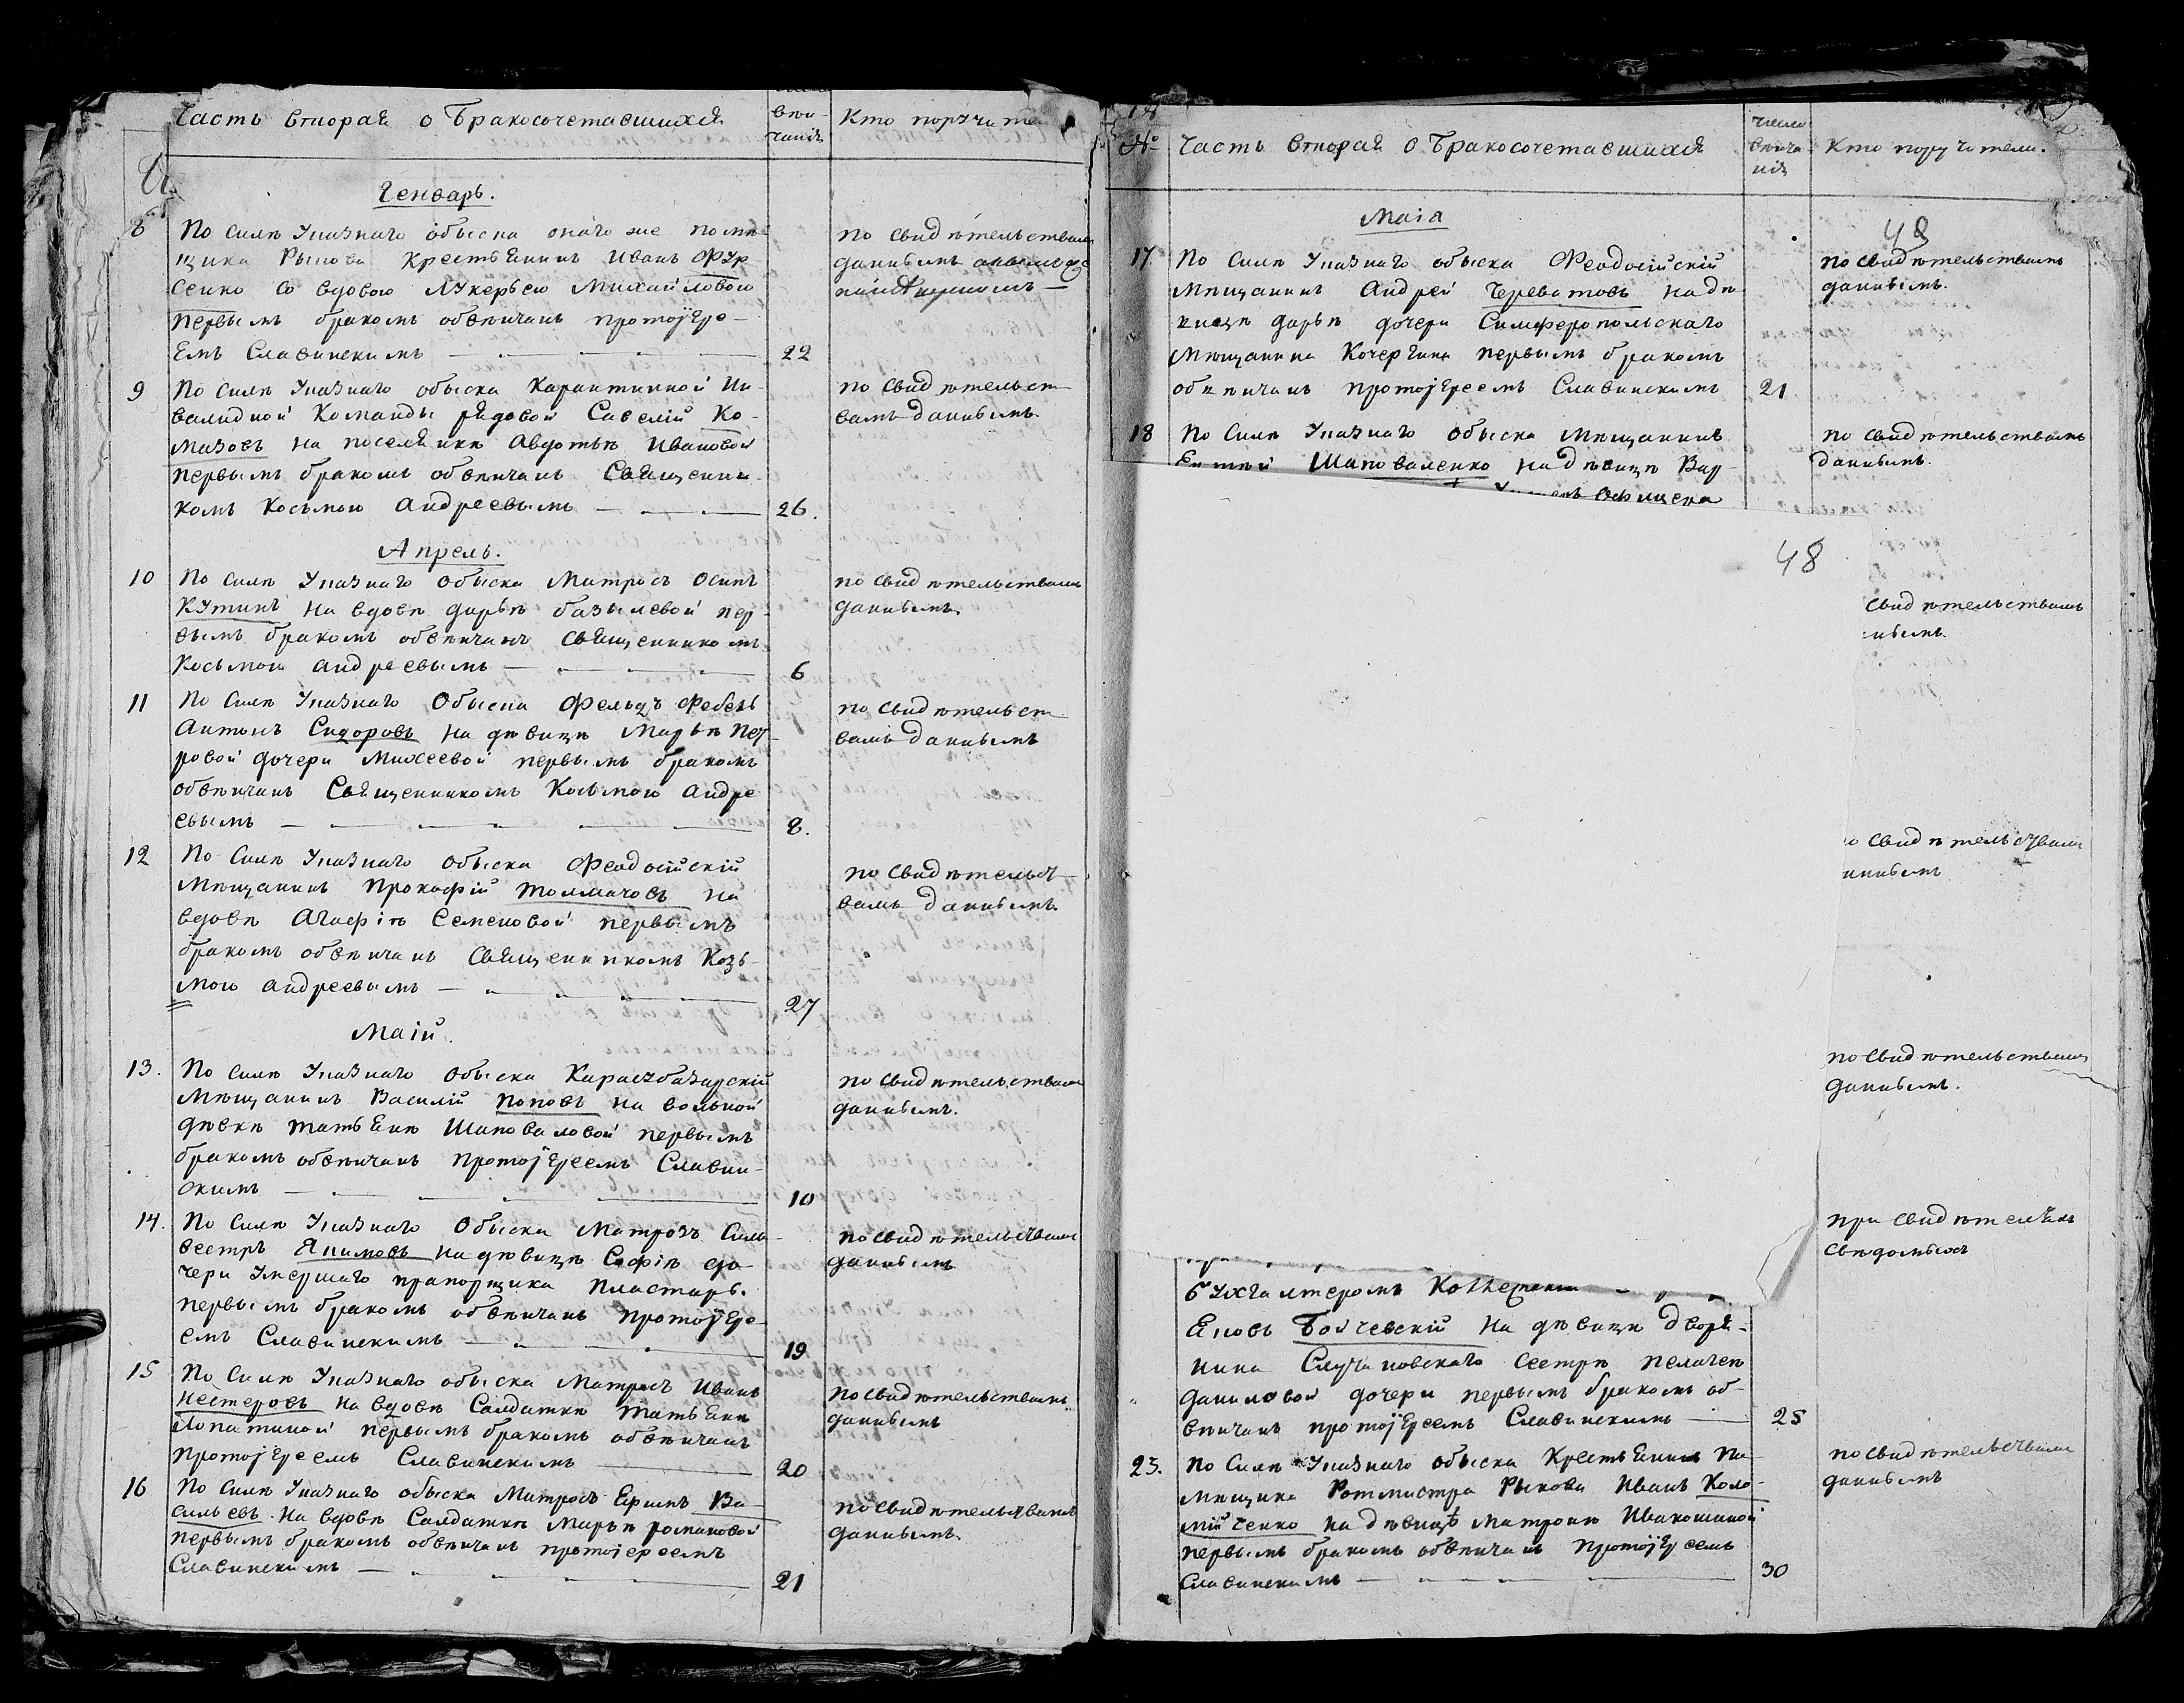 Часть вторая о Бракосочетавшихся
вѣн-
чанія
Кто поручители
Генварь.
8
По силѣ Указнаго обыска онаго же помѣ-
щика Рыкова Крестьянинъ Иванъ Фур-
сенко со вдовою Лукерьею Михайловою
первымъ бракомъ обвѣнчанъ протоіере-
емъ Славинскимъ
22
по свидѣтельствамъ
даннымъ
9
По силѣ Указнаго обыска Карантинной Ин-
валидной Команды рядовой Савелій Ко-
мазовъ на поселянкѣ Авдотьѣ Ивановой
первымъ бракомъ обвѣнчанъ Священни-
комъ Косьмою Андреевымъ
26.
по свидѣтельст-
вамъ даннымъ
Апрель.
10
По силѣ Указнаго обыска Матросъ Осипъ
Кутинъ на вдовѣ Дарьѣ базылевой пер-
вымъ бракомъ обвѣнчанъ священникомъ
Косьмою андреевымъ
6
по свидѣтельствамъ
даннымъ.
11
По силѣ Указнаго Обыска Фельдъ Фебель
Антонъ Сидоровъ на дѣвицѣ Марьѣ Пет-
ровой дочери Михеевой первымъ бракомъ
обвѣнчанъ Священникомъ Косьмою андре
евымъ
8.
по свидѣтельст-
вамъ даннымъ
12
По Силѣ Указнаго Обыска Феодосійскій
Мѣщанинъ Прокофій Толмачовъ на
вдовѣ Агафіѣ Семеновой первымъ
бракомъ обвѣнчанъ Священникомъ Козь-
мою андреевымъ
27
по свидѣтельст-
вамъ даннымъ.
Маій.
13.
По силѣ Указнаго Обыска Карасубазарскій
Мѣщанинъ Василій Поповъ на вольной
дѣвкѣ Татьянѣ Шаповаловой первымъ
бракомъ обвѣнчанъ протоіереемъ Славин-
скимъ
10
по свидѣтельствамъ
даннымъ.
14.
По Силѣ Указнаго Обыска Матрозъ Силь-
вестръ Якимовъ на дѣвицѣ Софіѣ до-
чери Умершаго прапорщика Пластарь.
первымъ бракомъ обвѣнчанъ протоіере-
емъ Славинскимъ
19
по свидѣтельствамъ
даннымъ
15
По Силѣ Указнаго обыска Матросъ Иванъ
Нестеровъ на вдовѣ Салдаткѣ Татьянѣ
Лопатиной первымъ бракомъ обвѣнчанъ
протоіереемъ Славинскимъ
20
по свидѣтельствамъ
даннымъ
16
По Силѣ Указнаго обыска Матросъ Ершъ Ва-
сильевъ на вдовѣ Салдаткѣ Марьѣ романовой
первымъ бракомъ обвѣнчанъ протоіереемъ
Славинскимъ
21
по свидѣтельствамъ
даннымъ.
№
Часть вторая о Бракосочетавшихся
число
вѣнча
нія
Кто поручители.
Маія
49
17.
По Силѣ Указнаго обыска Феодосійскій
Мѣщанинъ Андрей Череватовъ на дѣ
вицѣ дарьѣ дочери Симферопольскаго
Мѣщанина Кочергина первымъ бракомъ
обвѣнчанъ протоіереемъ Славинскимъ
21
по свидѣтельствамъ
даннымъ.
18
По Силѣ Указнаго Обыска Мѣщанинъ
Шаповаленко на дѣвицѣ Вар-
Офицера
по свидѣтельствамъ
даннымъ.
48
свидѣтельствамъ
ннымъ.
о свидѣтельствамъ
ннымъ
по свидѣтельствамъ
даннымъ.
при свидѣтеляхъ
свѣдомыхъ
бухгалтеромъ
Яковъ Бойчевскій на дѣвицѣ дворя-
нина Случановскаго сестрѣ пелагеѣ
даниловой дочери первымъ бракомъ об-
вѣнчанъ протоіереемъ Славинскимъ
25
23.
По Силѣ Указнаго обыска Крестьянинъ По
мѣщика Ротмистра Рыкова Иванъ Коло-
мійченко на дѣвицѣ Матронѣ Ивакошиной
первымъ бракомъ обвѣнчанъ протоіереемъ
Славинскимъ
30
по свидѣтельствамъ
даннымъ